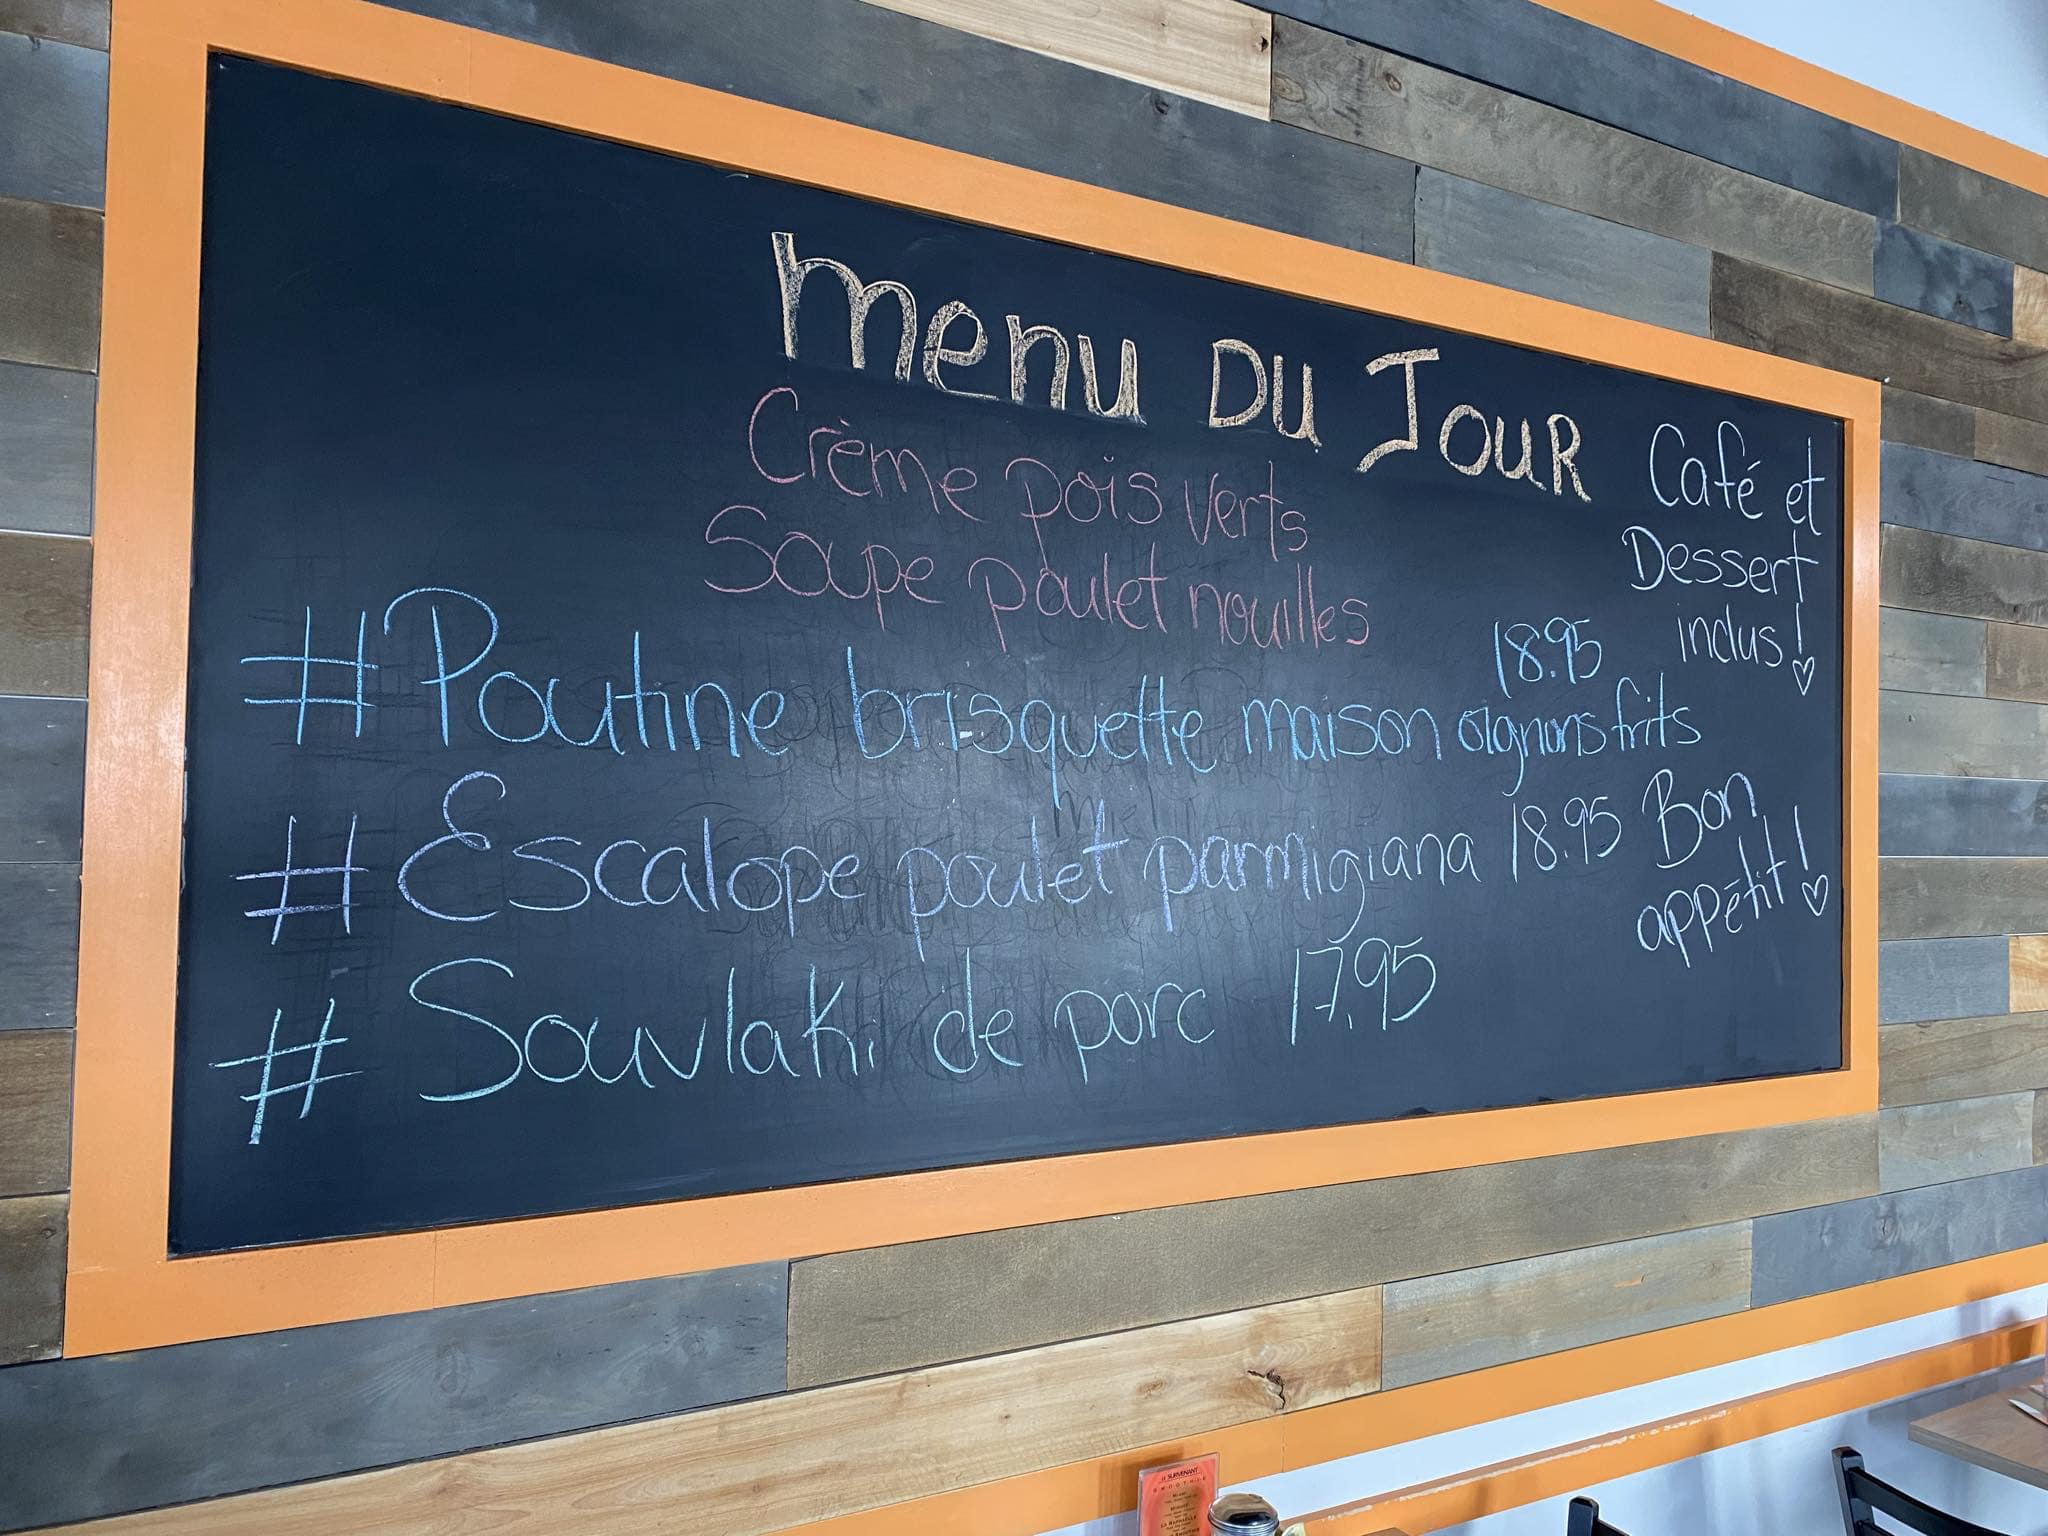 menu DU JOUR
Crème pois verts
Soupe poulet nouilles
Café et
Dessert
inclus!
18.95
# Poutine brisquette maison oignons frits
# Escalope poulet parmigiana 18.95
# Souvlaki de porc 17.95
Bon
appétit!
LE SURVENANT
SMOOTHIE